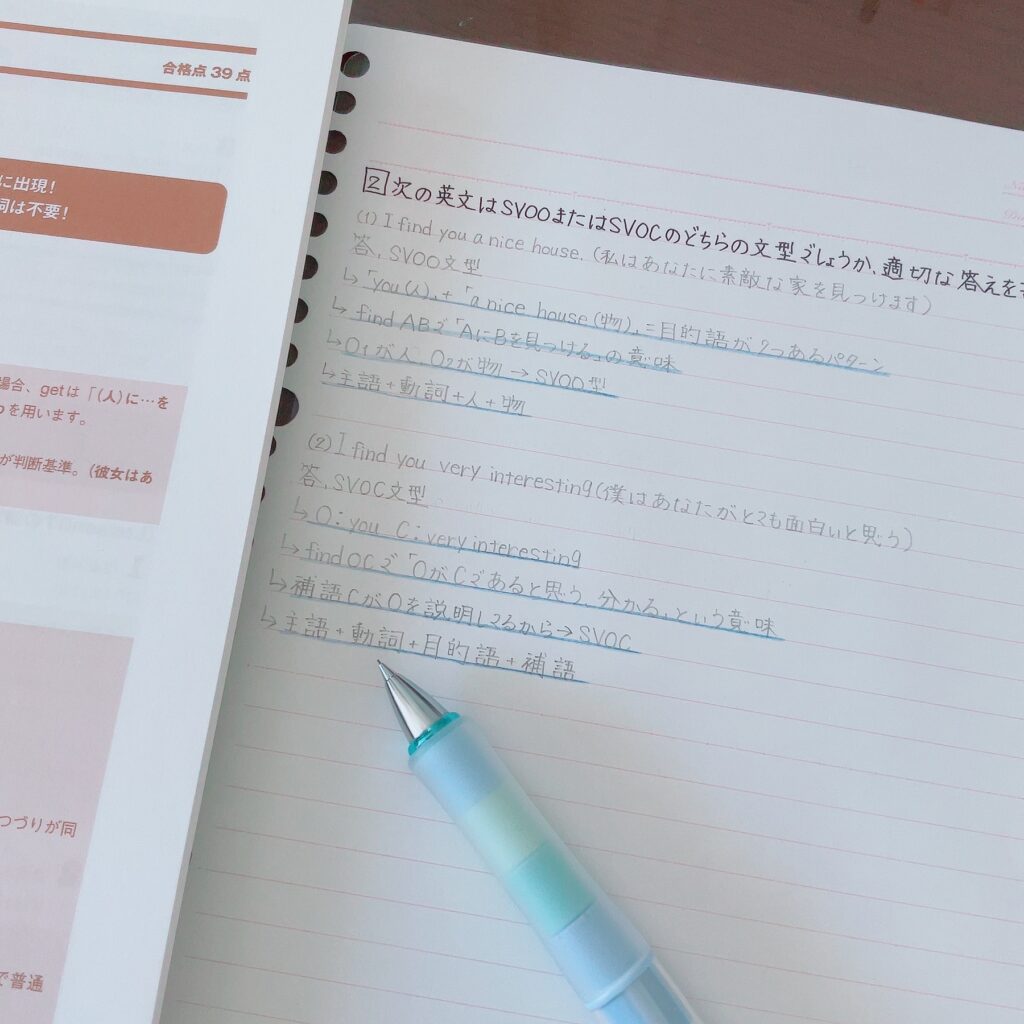 合格点 39 点
に出現！
詞は不要！
場合、getは「(人)に…を
を用います。
が判断基準。(彼女はあ
つづりが同
で普通
2 次の英文はSVOOまたはSVOCのどちらの文型でしょうか、適切な答えを
(1) I find you a nice house. (私はあなたに素敵な家を見つけます)
答, SVOO文型
↳「you(人)」+「a nice house(物)」=目的語が2つあるパターン
↳ find ABで「AにBを見つける」の意味
↳O1が人 O2が物→SVOO型
↳主語+動詞+人+物
(2) I find you very interesting(僕はあなたがとても面白いと思う)
答, SVOC文型
↳ O:you C:very interesting
↳find OCで「OがCであると思う、分かる」という意味
↳補語CがOを説明してるから→SVOC
↳主語+動詞+目的語+補語